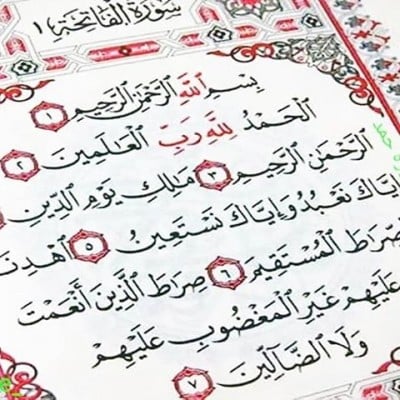 سورة الفاتحة ١
بِسْمِ ٱللَّهِ ٱلرَّحْمَٰنِ ٱلرَّحِيمِ ١
ٱلْحَمْدُ لِلَّهِ رَبِّ ٱلْعَٰلَمِينَ ٢
ٱلرَّحْمَٰنِ ٱلرَّحِيمِ ٣ مَٰلِكِ يَوْمِ ٱلدِّينِ
إِيَّاكَ نَعْبُدُ وَإِيَّاكَ نَسْتَعِينُ ٥ ٱهْدِنَا
صِرَٰطَ ٱلْمُسْتَقِيمَ ٦ صِرَٰطَ ٱلَّذِينَ أَنْعَمْتَ
عَلَيْهِمْ غَيْرِ ٱلْمَغْضُوبِ عَلَيْهِمْ
وَلَا ٱلضَّآلِّينَ ٧